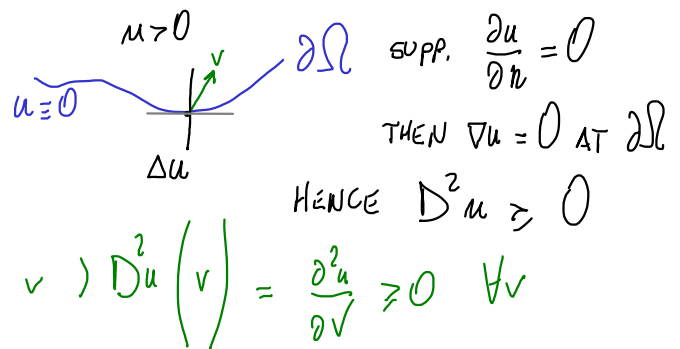 u>0
v
∂Ω
SUPP. ∂u/∂n = 0
u≡0
THEN ∇u = 0 AT ∂Ω
Δu
HENCE D²u ≥ 0
v ) D²u ( v ) = ∂²u/∂v ≥ 0 ∀v